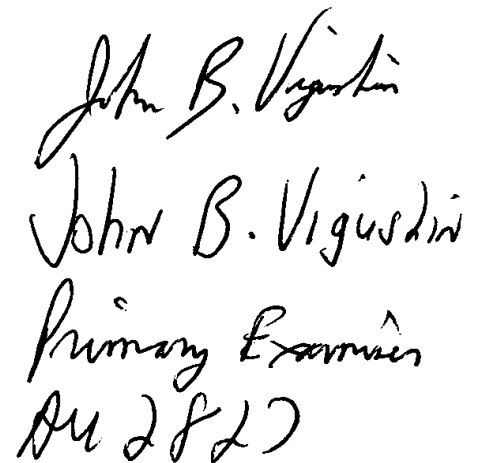 John B. Vigushin
John B. Vigushin
Primary Examiner
AU 2827